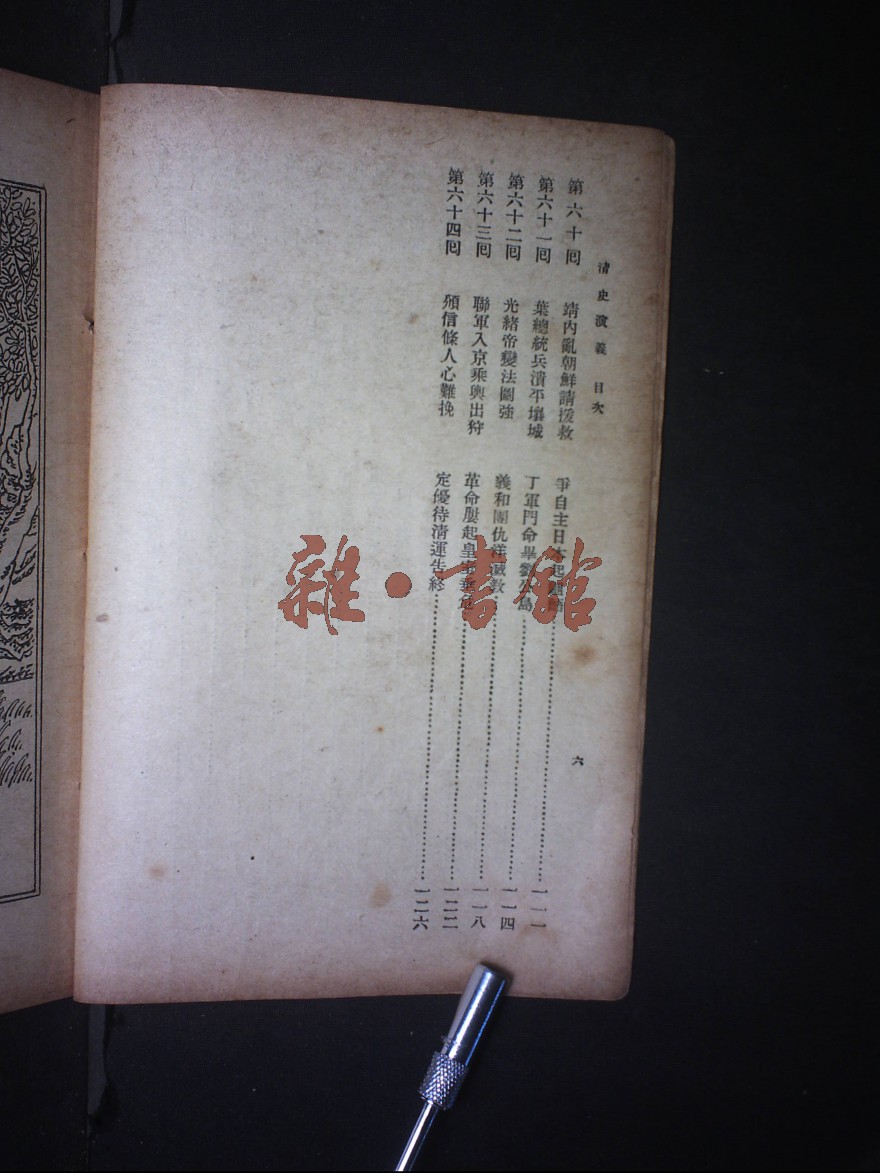 清史演義 目次 六
第六十囘 靖內亂朝鮮請援救 爭自主日本起……一一一
第六十一囘 葉總統兵潰平壤城 丁軍門命畢劉公島……一一四
第六十二囘 光緒帝變法圖強 義和團仇洋滅教……一一八
第六十三囘 聯軍入京乘輿出狩 革命屢起皇室垂危……一二二
第六十四囘 頒信條人心難挽 定優待清運告終……一二六
雜·書館